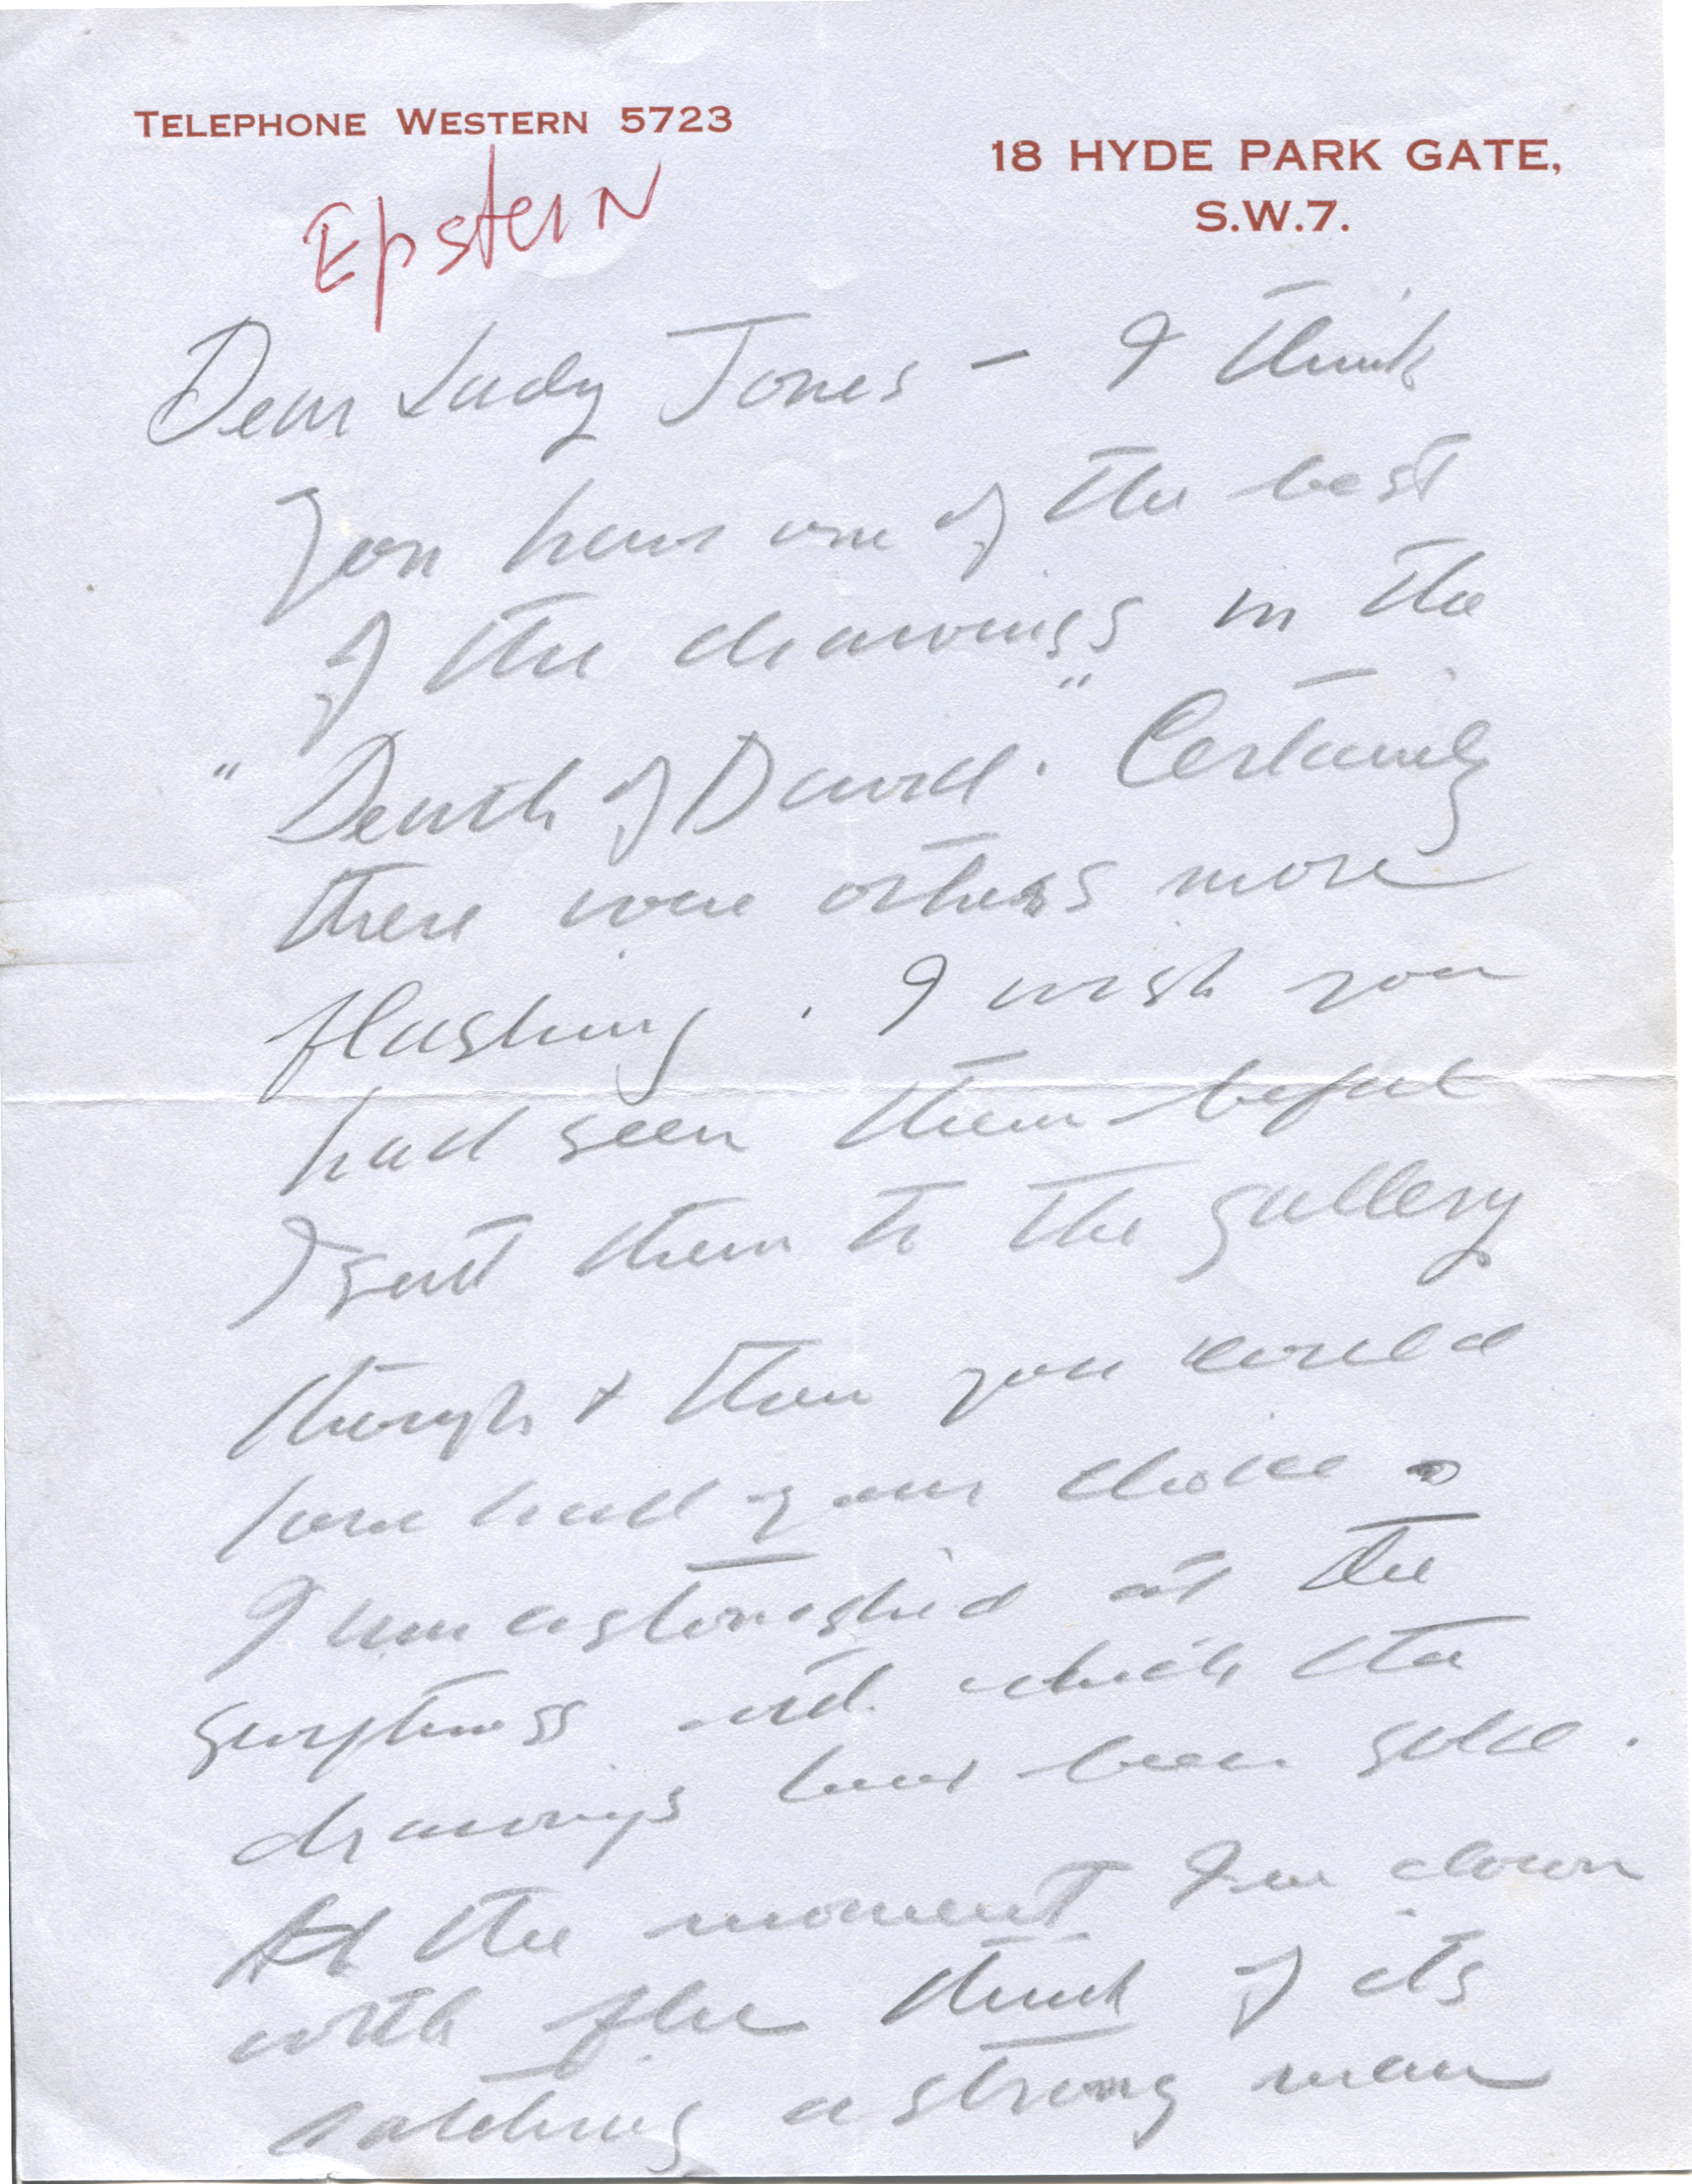 TELEPHONE WESTERN 5723
18 HYDE PARK GATE,
S.W.7.
Epstein
Dear Lady Jones – I think
you have one of the best
of the drawings in the
"Death of David." Certainly
there were others more
flashing. I wish you
had seen them before
I sent them to the gallery
though & then you could
have had your choice.
I am astonished at the
with which the
drawings have been sold.
At the moment I'm down
with flu think of its
catching a strong man